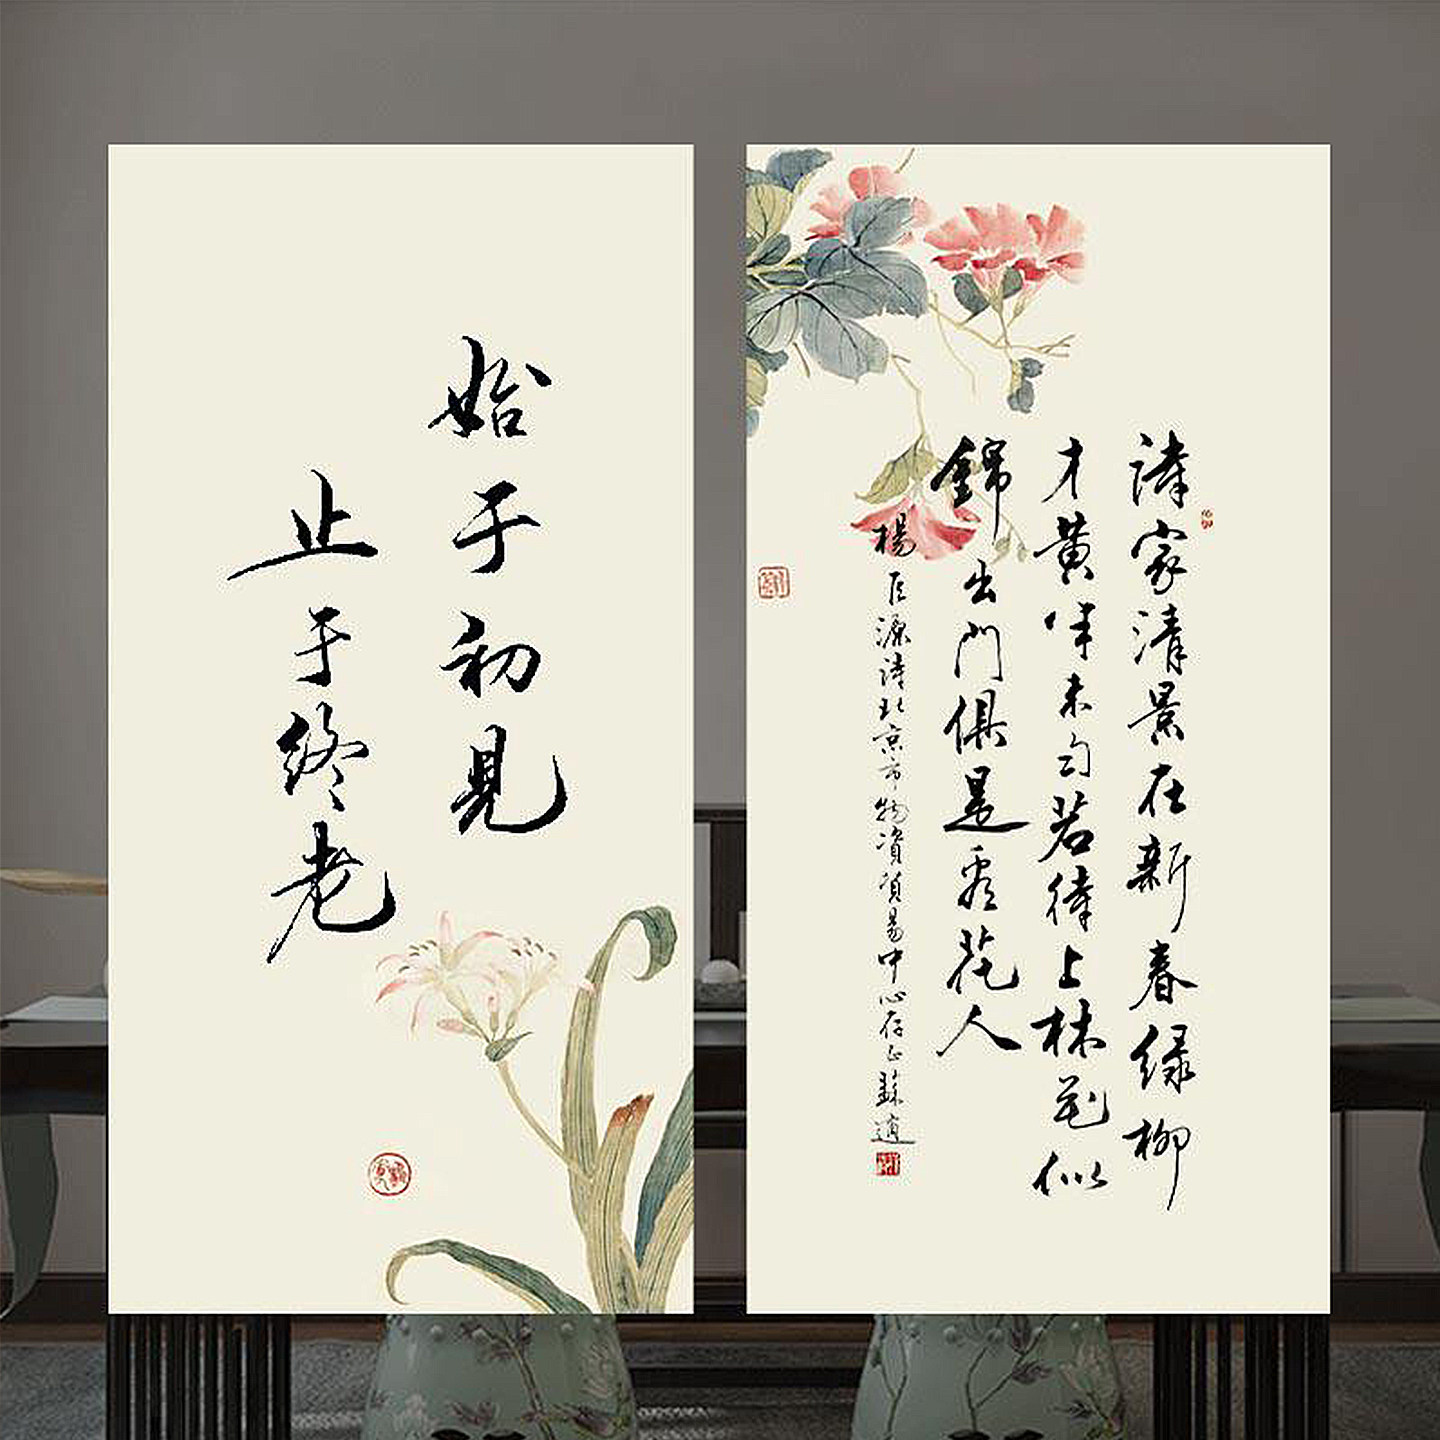 始于初見
止于终老
詩家清景在新春绿柳
才黄半未匀若待上林花似
錦出門俱是看花人
楊巨源詩北京市物資貿易中心存正蘇適